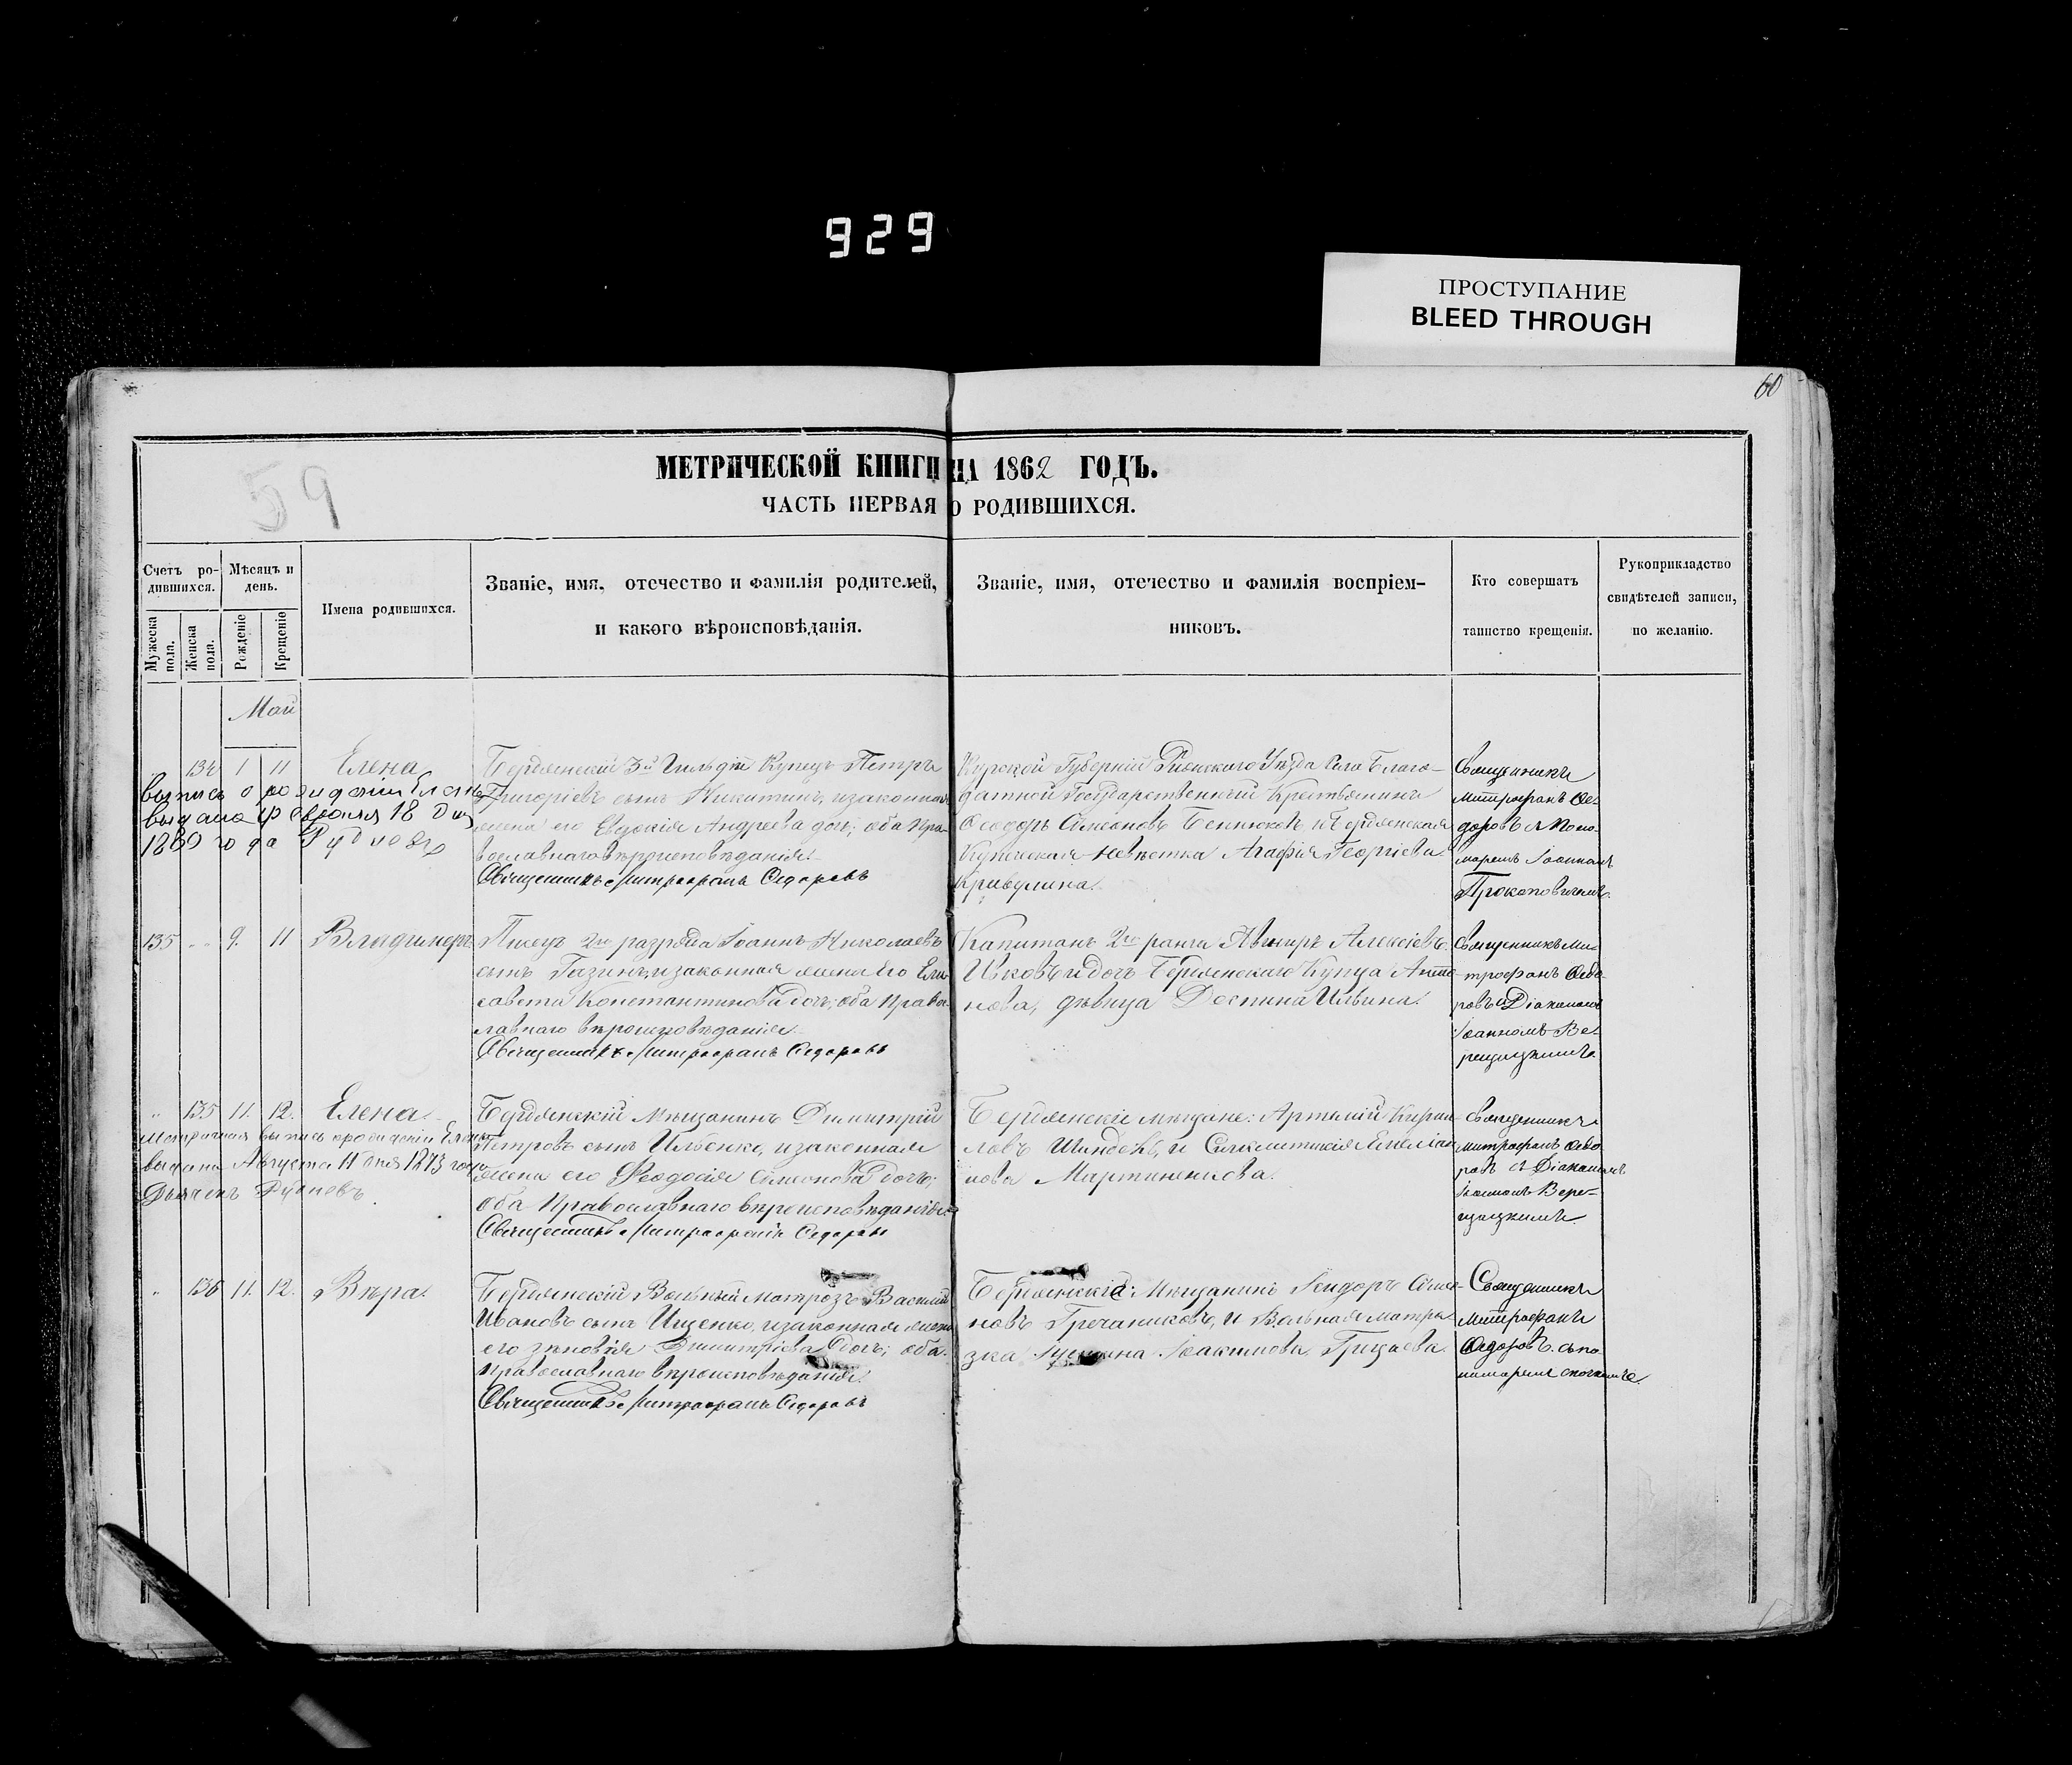 929
ПРОСТУПАНИЕ
BLEED THROUGH
60
59
МЕТРИЧЕСКОЙ КНИГИ НА 1862 ГОДЪ.
ЧАСТЬ ПЕРВАЯ О РОДИВШИХСЯ.
Счетъ ро-
дившихся.
Мужеска пола.
Женска пола.
Мѣсяцъ и
день.
Рожденіе
Крещеніе
Имена родившихся.
Званіе, имя, отечество и фамилія родителей,
и какого вѣроисповѣданія.
Званіе, имя, отечество и фамилія воспріем-
никовъ.
Кто совершатъ
таинство крещенія.
Рукоприкладство
свидѣтелей записи,
по желанію.
Май
134 1 11 Елена
выпись о рождении Елены
выдана февраля 18 дня
1869 года Рудневъ
Бердянскій 3й Гильдіи Купецъ Петръ
Григоріевъ сынъ Никитинъ, и законная
жена его Евдокія Андреева дочь; оба Пра-
вославнаго вѣроисповѣданія.
Священникъ Митрофанъ Федоровъ
Курской Губерніи Уѣзда Села Благо-
датной Государственный Крестьянинъ
Ѳеодоръ Симеоновъ и Бердянская
Купеческая невѣстка Агафія Георгіева
Кривулина.
Священникъ
Митрофанъ Ѳе-
доровъ с Поно-
маремъ Іоанномъ
Прокоповичемъ.
135 " 9. 11 Владимеръ
Писецъ 2го разряда Іоаннъ Николаевъ
сынъ Газинъ, и законная жена Его Ели-
савета Константинова дочь; оба Право-
славнаго вѣроисповѣданія.
Священникъ Митрофанъ Федоровъ
Капитанъ 2го ранга Авениръ Алексіевъ
Ивковъ и дочь Бердянскаго Купца Анто-
нова, дѣвица Деспина Ильина.
Священникъ Ми-
трофанъ Ѳедо-
ровъ с Діакономъ
Іоанномъ Ве-
рещицкимъ.
" 135 11. 12. Елена
Метричная выпись о рождении Елены
выдана Августа 11 дня 1873 года
Дьячекъ Рудневъ.
Бердянскій Мѣщанинъ Димитрій
Петровъ сынъ Ильенко, и законная
жена его Феодосія Симеонова дочь;
оба Православнаго вѣроисповѣданія.
Священникъ Митрофанъ Федоровъ
Бердянскіе мѣщане: Артемій Кирил-
ловъ и Синклитикія Емелиа-
нова Мартыненкова.
Священникъ
Митрофанъ Ѳедо-
ровъ с Діакономъ
Іоанномъ Вере-
щицкимъ.
" 136 11. 12. Вѣра.
Бердянскій Вольный Матрозъ Василій
Ивановъ сынъ Ищенко, и законная жена
его Зѣновія Димитріева дочь; оба
Православнаго вѣроисповѣданія.
Священникъ Митрофанъ Федоровъ
Бердянскіе: Мѣщанинъ Исидоръ Симео-
новъ Гречаниковъ, и Вольная матро-
зка Іоакимова Грицаева.
Священникъ
Митрофанъ
Ѳедоровъ с по-
номаремъ